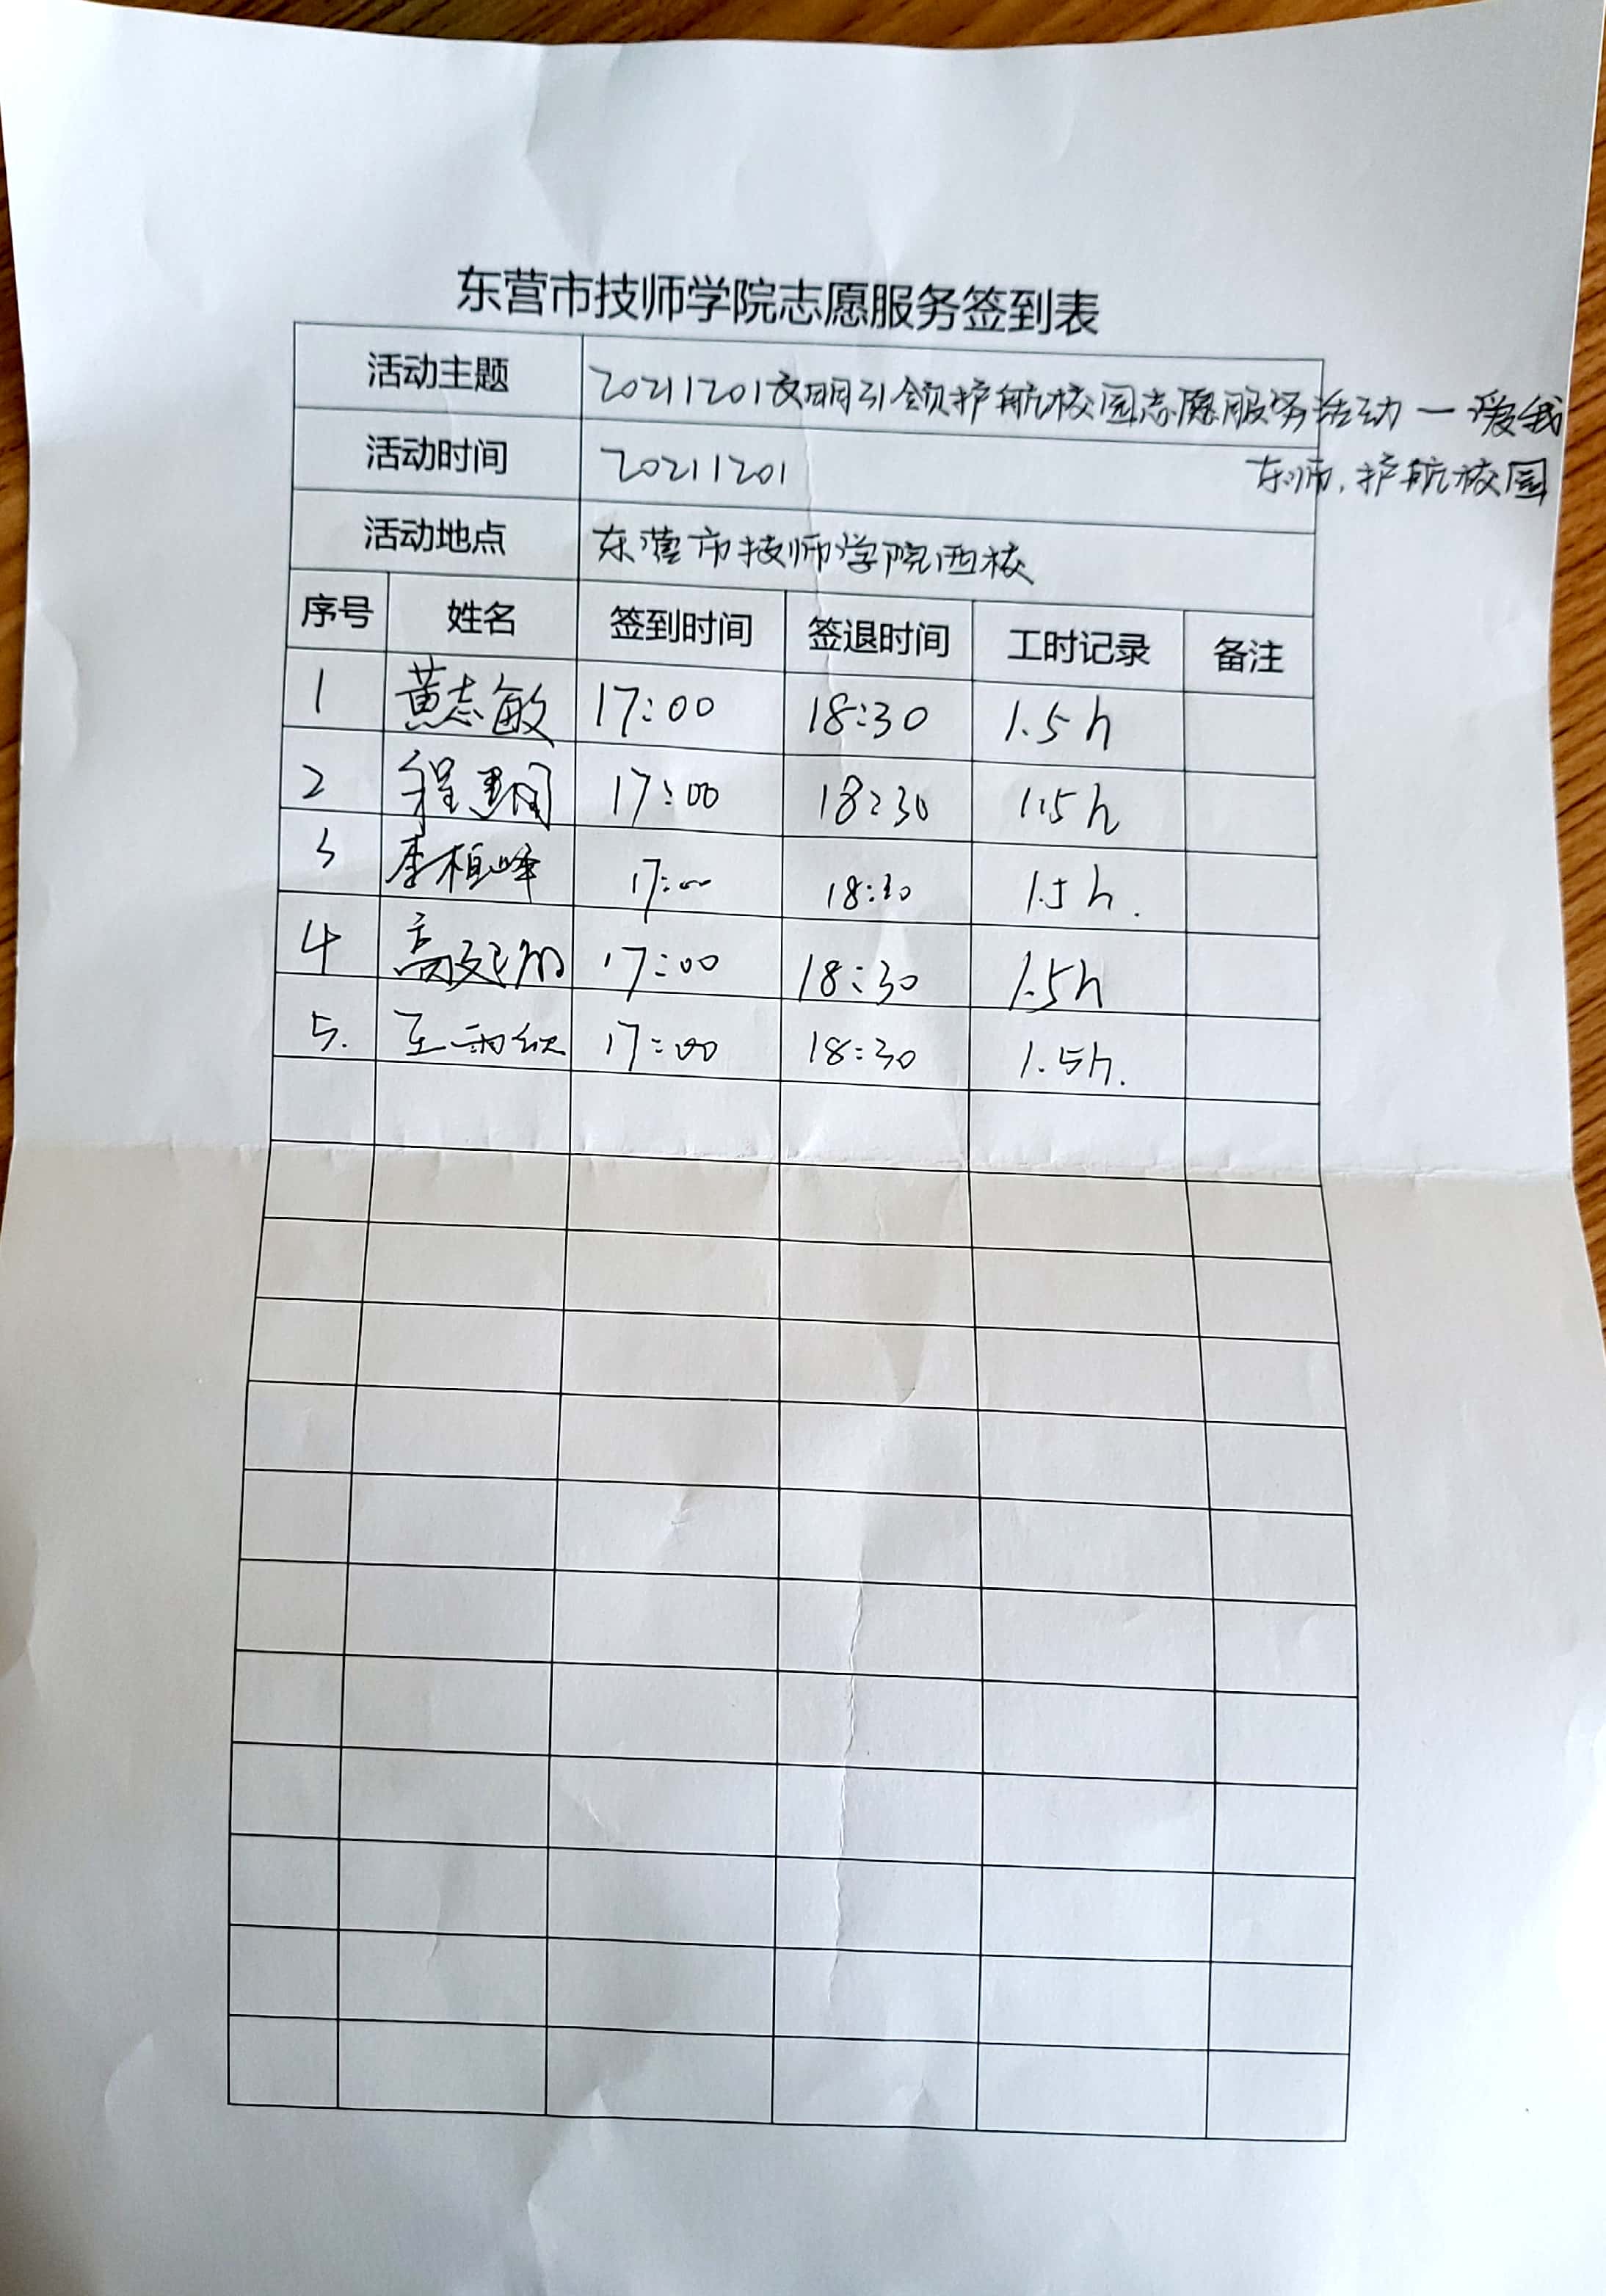 东营市技师学院志愿服务签到表
活动主题 20211201文明引领护航校园志愿服务活动一爱我
东师,护航校园
活动时间 20211201
活动地点 东营市技师学院西校
序号 姓名 签到时间 签退时间 工时记录 备注
1 黄志敏 17:00 18:30 1.5h
2 程 17:00 18:30 1.5h
3 李桓峰 17:00 18:30 1.5h.
4 高 17:00 18:30 1.5h
5. 王雨欣 17:00 18:30 1.5h.